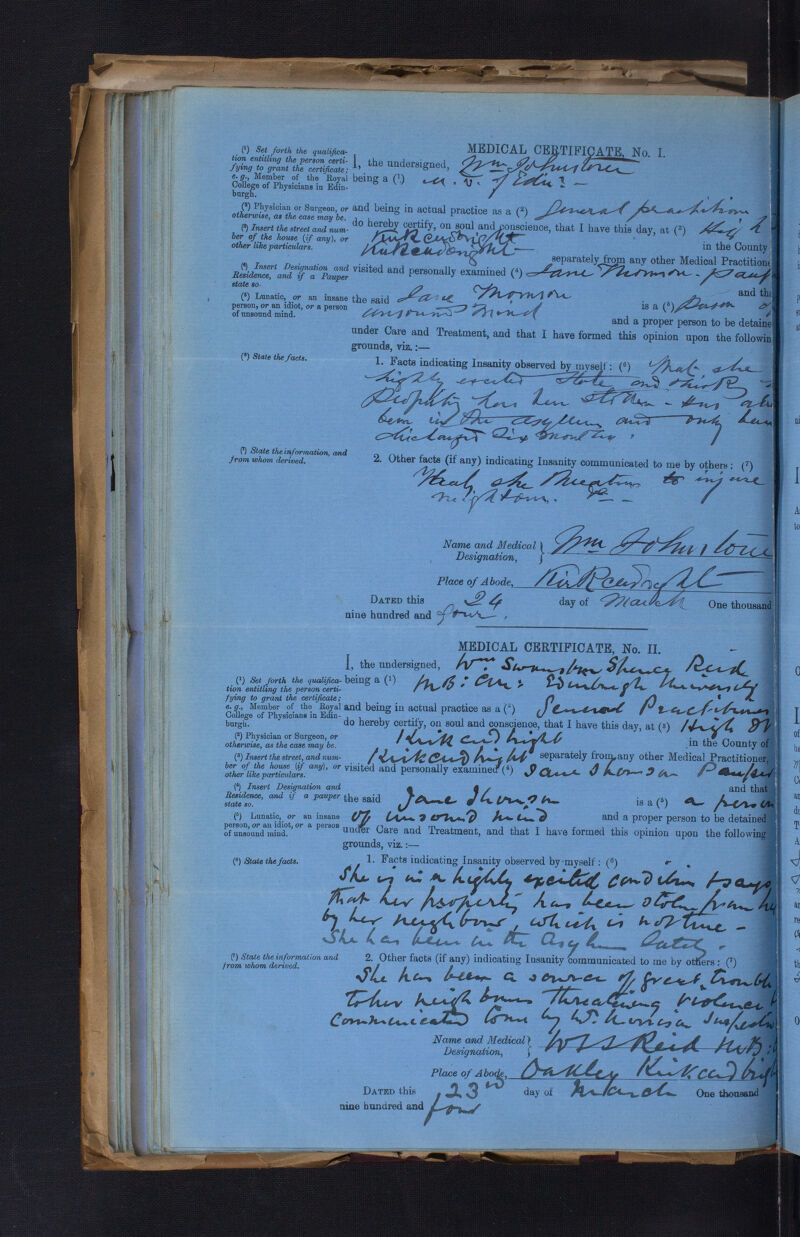 MEDICAL CERTIFICATE, No. I.
(1) Set forth the qualifica-
tion entitling the person certi-
fying to grant the certificate;
e.g., Member of the Royal
College of Physicians in Edin-
burgh.
I, the undersigned, Wm Johnstone
being a (1) M.D. of Edinr –
(2) Physician or Surgeon, or
otherwise, as the case may be.
and being in actual practice as a (2) General practitioner
(3) Insert the street and num-
ber of the house (if any), or
other like particulars.
do hereby certify, on soul and conscience, that I have this day, at (3) High
Kirkcudbright
Kirkcudbright in the County
separately from any other Medical Practitione
(4) Insert Designation and
Residence, and if a Pauper
state so
visited and personally examined (4) Jane Thomson - paup
(5) Lunatic, or an insane
person, or an idiot, or a person
of unsound mind.
and tha
the said Jane Thomson is a (5) Person of
unsound mind and a proper person to be detaine
under Care and Treatment, and that I have formed this opinion upon the followin
grounds, viz.:—
(6) State the facts.
1. Facts indicating Insanity observed by myself: (6) That she
highly excited state and thinks
Property has been stolen - Has
been in the asylum and only been
discharged six months.
(7) State the information, and
from whom derived.
2. Other facts (if any) indicating Insanity communicated to me by others: (7)
That she threatens to injure
neighbours.
Name and Medical
Designation, } Wm Johnstone
Place of Abode, Kirkcudbright
DATED this 24 day of March One thousand
nine hundred and four.
MEDICAL CERTIFICATE, No. II.
I, the undersigned, Wm Swanston Reid
(1) Set forth the qualifica-
tion entitling the person certi-
fying to grant the certificate;
e.g., Member of the Royal
College of Physicians in Edin-
burgh.
being a (1) M.B: C.M: Edinburgh University
and being in actual practice as a (2) General Practitioner
do hereby certify, on soul and conscience, that I have this day, at (3) High St
(2) Physician or Surgeon, or
otherwise, as the case may be.
Kirkcudbright in the County of
(3) Insert the street, and num-
ber of the house (if any), or
other like particulars.
Kirkcudbright separately from any other Medical Practitioner,
visited and personally examined (4) Jane Thomson Pauper
(4) Insert Designation and
Residence, and if a pauper
state so.
and that
the said Jane Thomson is a (5) a person
(5) Lunatic, or an insane
person, or an idiot, or a person
of unsound mind.
of unsound mind and a proper person to be detained
under Care and Treatment, and that I have formed this opinion upon the following
grounds, viz.:—
(6) State the facts.
1. Facts indicating Insanity observed by myself: (6)
She is in a highly excited condition & says
that her property has been stolen from her
by her neighbours, which is not true -
She has been in the Asylum lately.
(7) State the information and
from whom derived.
2. Other facts (if any) indicating Insanity communicated to me by others: (7)
She has been a source of great trouble
to her neighbours threatening violence
Communicated to me by Inspector
Name and Medical
Designation, } W S S Reid M.B:
Place of Abode, Oakley Kirkcudbrig
DATED this 23rd day of March One thousand
nine hundred and four